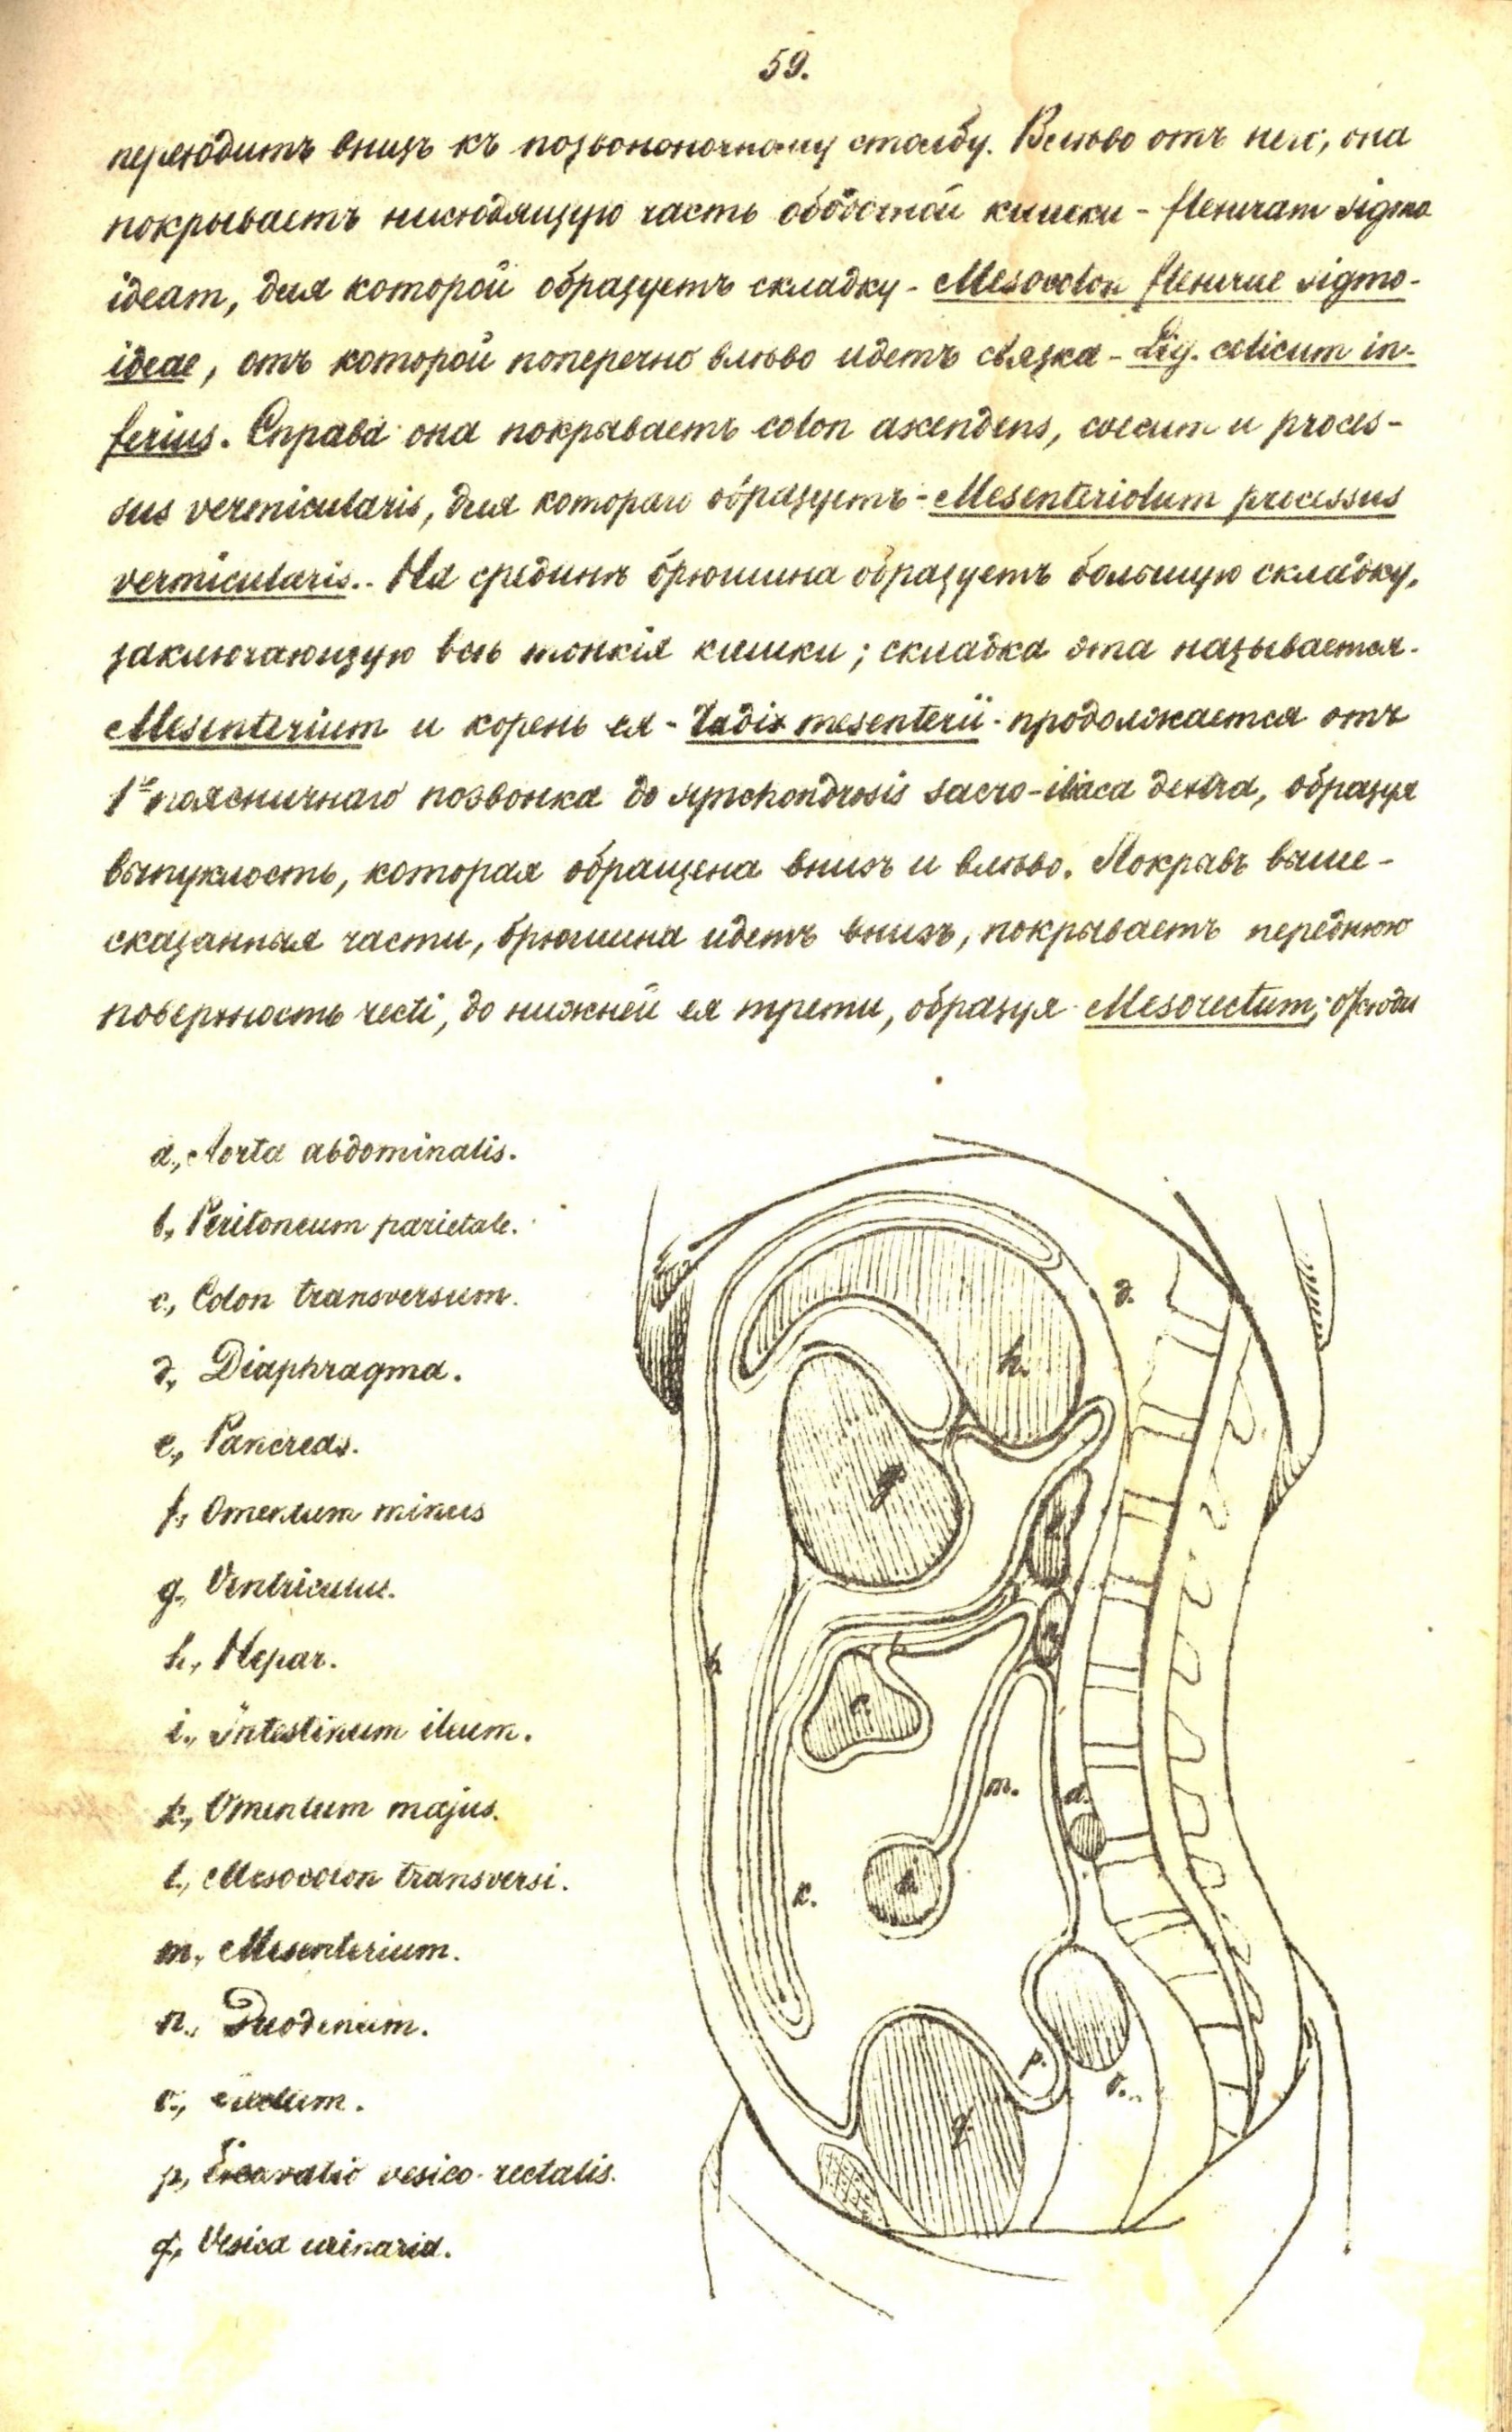 59.
переходитъ внизъ къ позвононочному столбу. Влѣво отъ нея, она
покрываетъ нисходящую часть ободошной кишки - flexuram sigmo
ideam, для которой образуетъ складку - Mesocolon flexurae sigmo-
ideae, отъ которой поперечно влѣво идетъ связка - Lig. colicum in-
ferius. Справа она покрываетъ colon ascendens, coecum и proces-
sus vermicularis, для котораго образуетъ - Mesenteriolum processus
vermicularis. - На срединѣ брюшина образуетъ большую складку,
заключающую всѣ тонкія кишки; складка эта называется -
Mesenterium и корень ея - Radix mesenterii - продолжается отъ
1го поясничнаго позвонка до synchondrosis sacro-iliaca dextra, образуя
выпуклость, которая обращена внизъ и влѣво. Покрывъ выше-
сказанныя части, брюшина идетъ внизъ, покрываетъ переднюю
поверхность recti, до нижней ея трети, образуя Mesorectum; отсюда
a., Aorta abdominalis.
b., Peritoneum parietale.
c., Colon transversum.
d., Diaphragma.
e., Pancreas.
f., Omentum minus
g., Ventriculus.
h., Hepar.
i., Intestinum ileum.
k., Omentum majus.
l., Mesocolon transversi.
m., Mesenterium.
n., Duodenum.
o., Rectum.
p., Excavatio vesico-rectalis.
q., Vesica urinaria.
d.
h.
g
b
l
c.
n
m.
a.
k.
i
p.
o.
q.